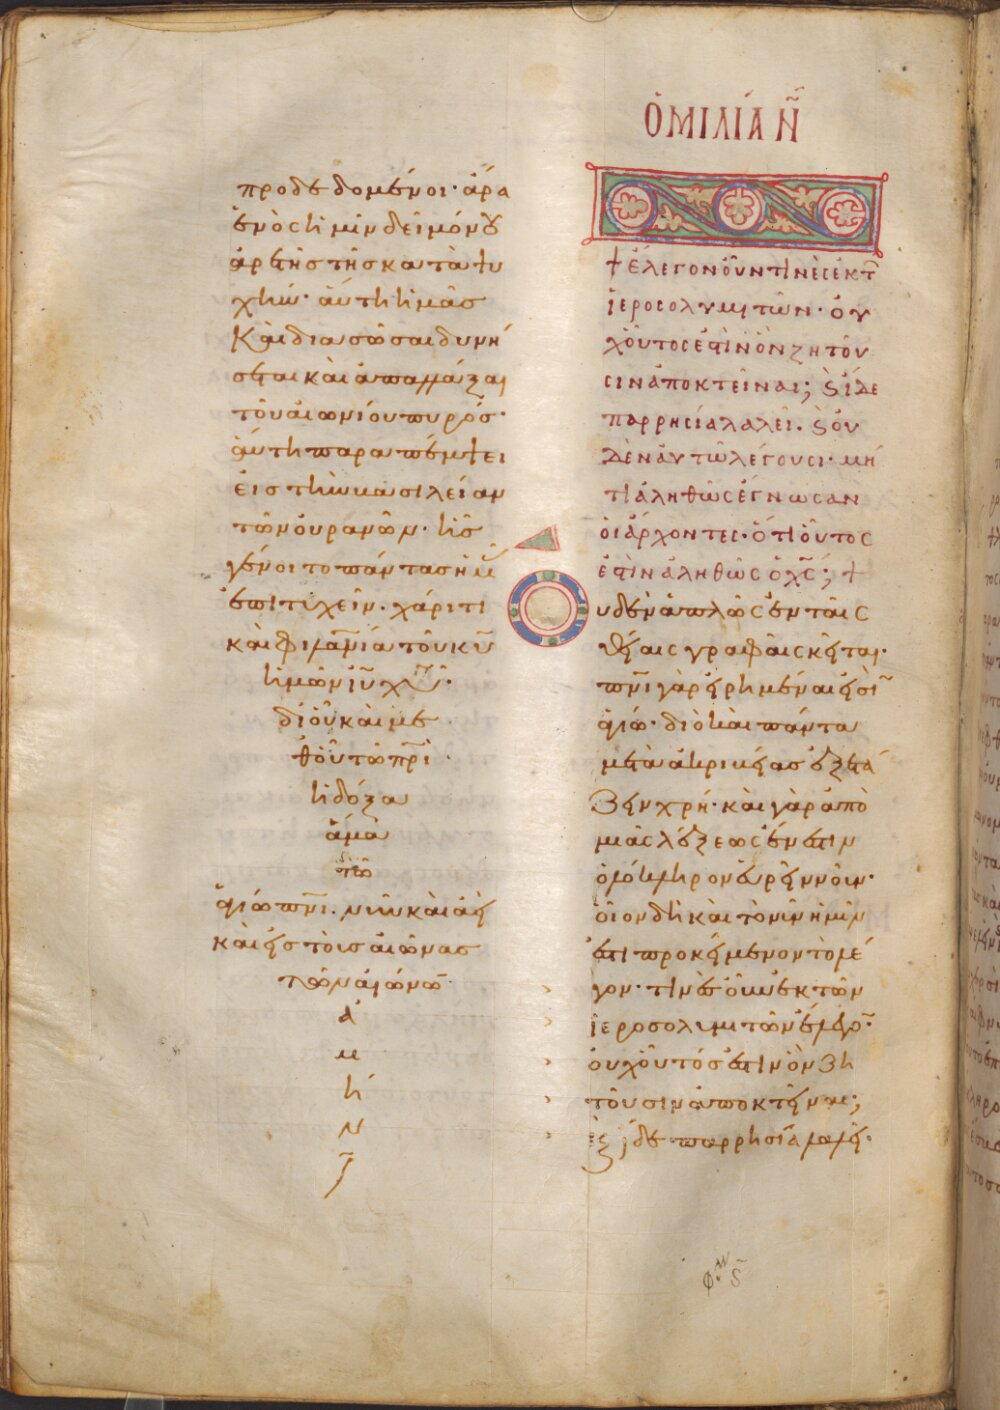 προδεδομένοι· ἆρα
ἑνὸς ἡμῖν δεῖ μόνου
ἀρετῆς τῆς κατὰ ψυ
χὴν· αὕτη ἡμᾶς
καὶ διασῶσαι δυνή
σεται καὶ ἀπαλλάξαι
τοῦ αἰωνίου πυρός·
αὕτη παραπέμψει
εἰς τὴν βασιλείαν
τῶν οὐρανῶν· ἧς
γένοιτο πάντας ἡμᾶς
ἐπιτυχεῖν· χάριτι
καὶ φιλανίᾳ τοῦ κυ
ἡμῶν ιυ χυ·
δι οὗ καὶ με
θ οὗ τῶ πρι
ἡ δόξα
ἅμα
τῶ
ἁγίω πνι· νῦν καὶ ἀεὶ
καὶ εἰς τοὺς αἰῶνας
τῶν αἰώνων
ἀ
μ
ή
ν
ὉΜΙΛΊΑ Ν
† ἔλεγον οὖν τινὲς ἐκ τ
ἱεροσολυμιτῶν· οὐ
χ οὗτος ἐστὶν ὃν ζητοῦ
σιν ἀποκτεῖναι; ϗ ἴδε
παρρησία λαλεῖ· ϗ οὐ
δὲν αὐτῶ λέγουσι· μή
τι ἀληθῶς ἔγνωσαν
οἱ ἄρχοντες· ὅτι οὗτος
ἐστὶν ἀληθῶς ὁ χς; †
Ουδὲν ἁπλῶς ἐν ταῖς
θείαις γραφαῖς κεῖται·
πνι γὰρ εἰρημέναι εἰσὶ
ἁγίω· διὸ καὶ πάντα
μετὰ ἀκριβείας ἐξετά
ζειν χρή· καὶ γὰρ ἀπὸ
μιᾶς λέξεως ἔνεστιν
ὁλόκληρον εὑρεῖν νοῦν·
οἷον δὴ καὶ τὸ νῦν ἡμῖν
ἐστι προκείμενον τὸ λέ
γον· τινὲς οὖν ἐκ τῶν
ἱεροσολυμιτῶν ἔλεγον·
οὐχ οὗτός ἐστιν ὃν ζη
τοῦσιν ἀποκτεῖναι;
ϗ ἴδε παρρησία λαλεῖ·